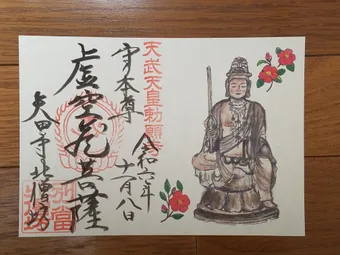 天武天皇勅願寺
守本尊
令和六年
十一月八日
虚空蔵菩薩
矢田寺北僧坊
別当